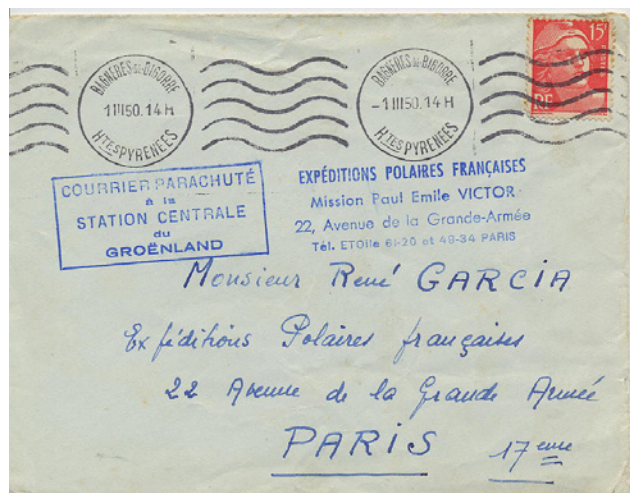 15F
RF
BAGNERES-DE-BIGORRE
1 III 50. 14 H
HTES PYRENEES
BAGNERES-DE-BIGORRE
-1 III 50. 14 H
HTES PYRENEES
COURRIER PARACHUTÉ
à la
STATION CENTRALE
du
GROËNLAND
EXPÉDITIONS POLAIRES FRANÇAISES
Mission Paul Emile VICTOR
22, Avenue de la Grande-Armée
Tél. ETOile 61-20 et 49-34 PARIS
Monsieur René GARCIA
Expéditions Polaires françaises
22 Avenue de la Grande Armée
PARIS 17eme